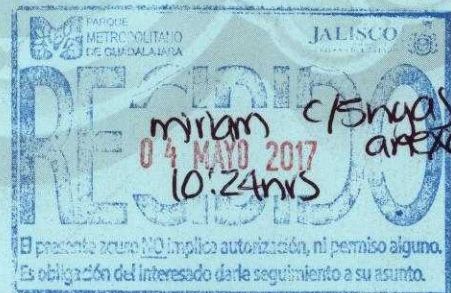 PARQUE
METROPOLITANO
DE GUADALAJARA
JALISCO
RECIBIDO
miriam c/5 hojas
anexo
04 MAYO 2017
10:24 hrs
El presente acuse NO implica autorización, ni permiso alguno.
Es obligación del interesado darle seguimiento a su asunto.